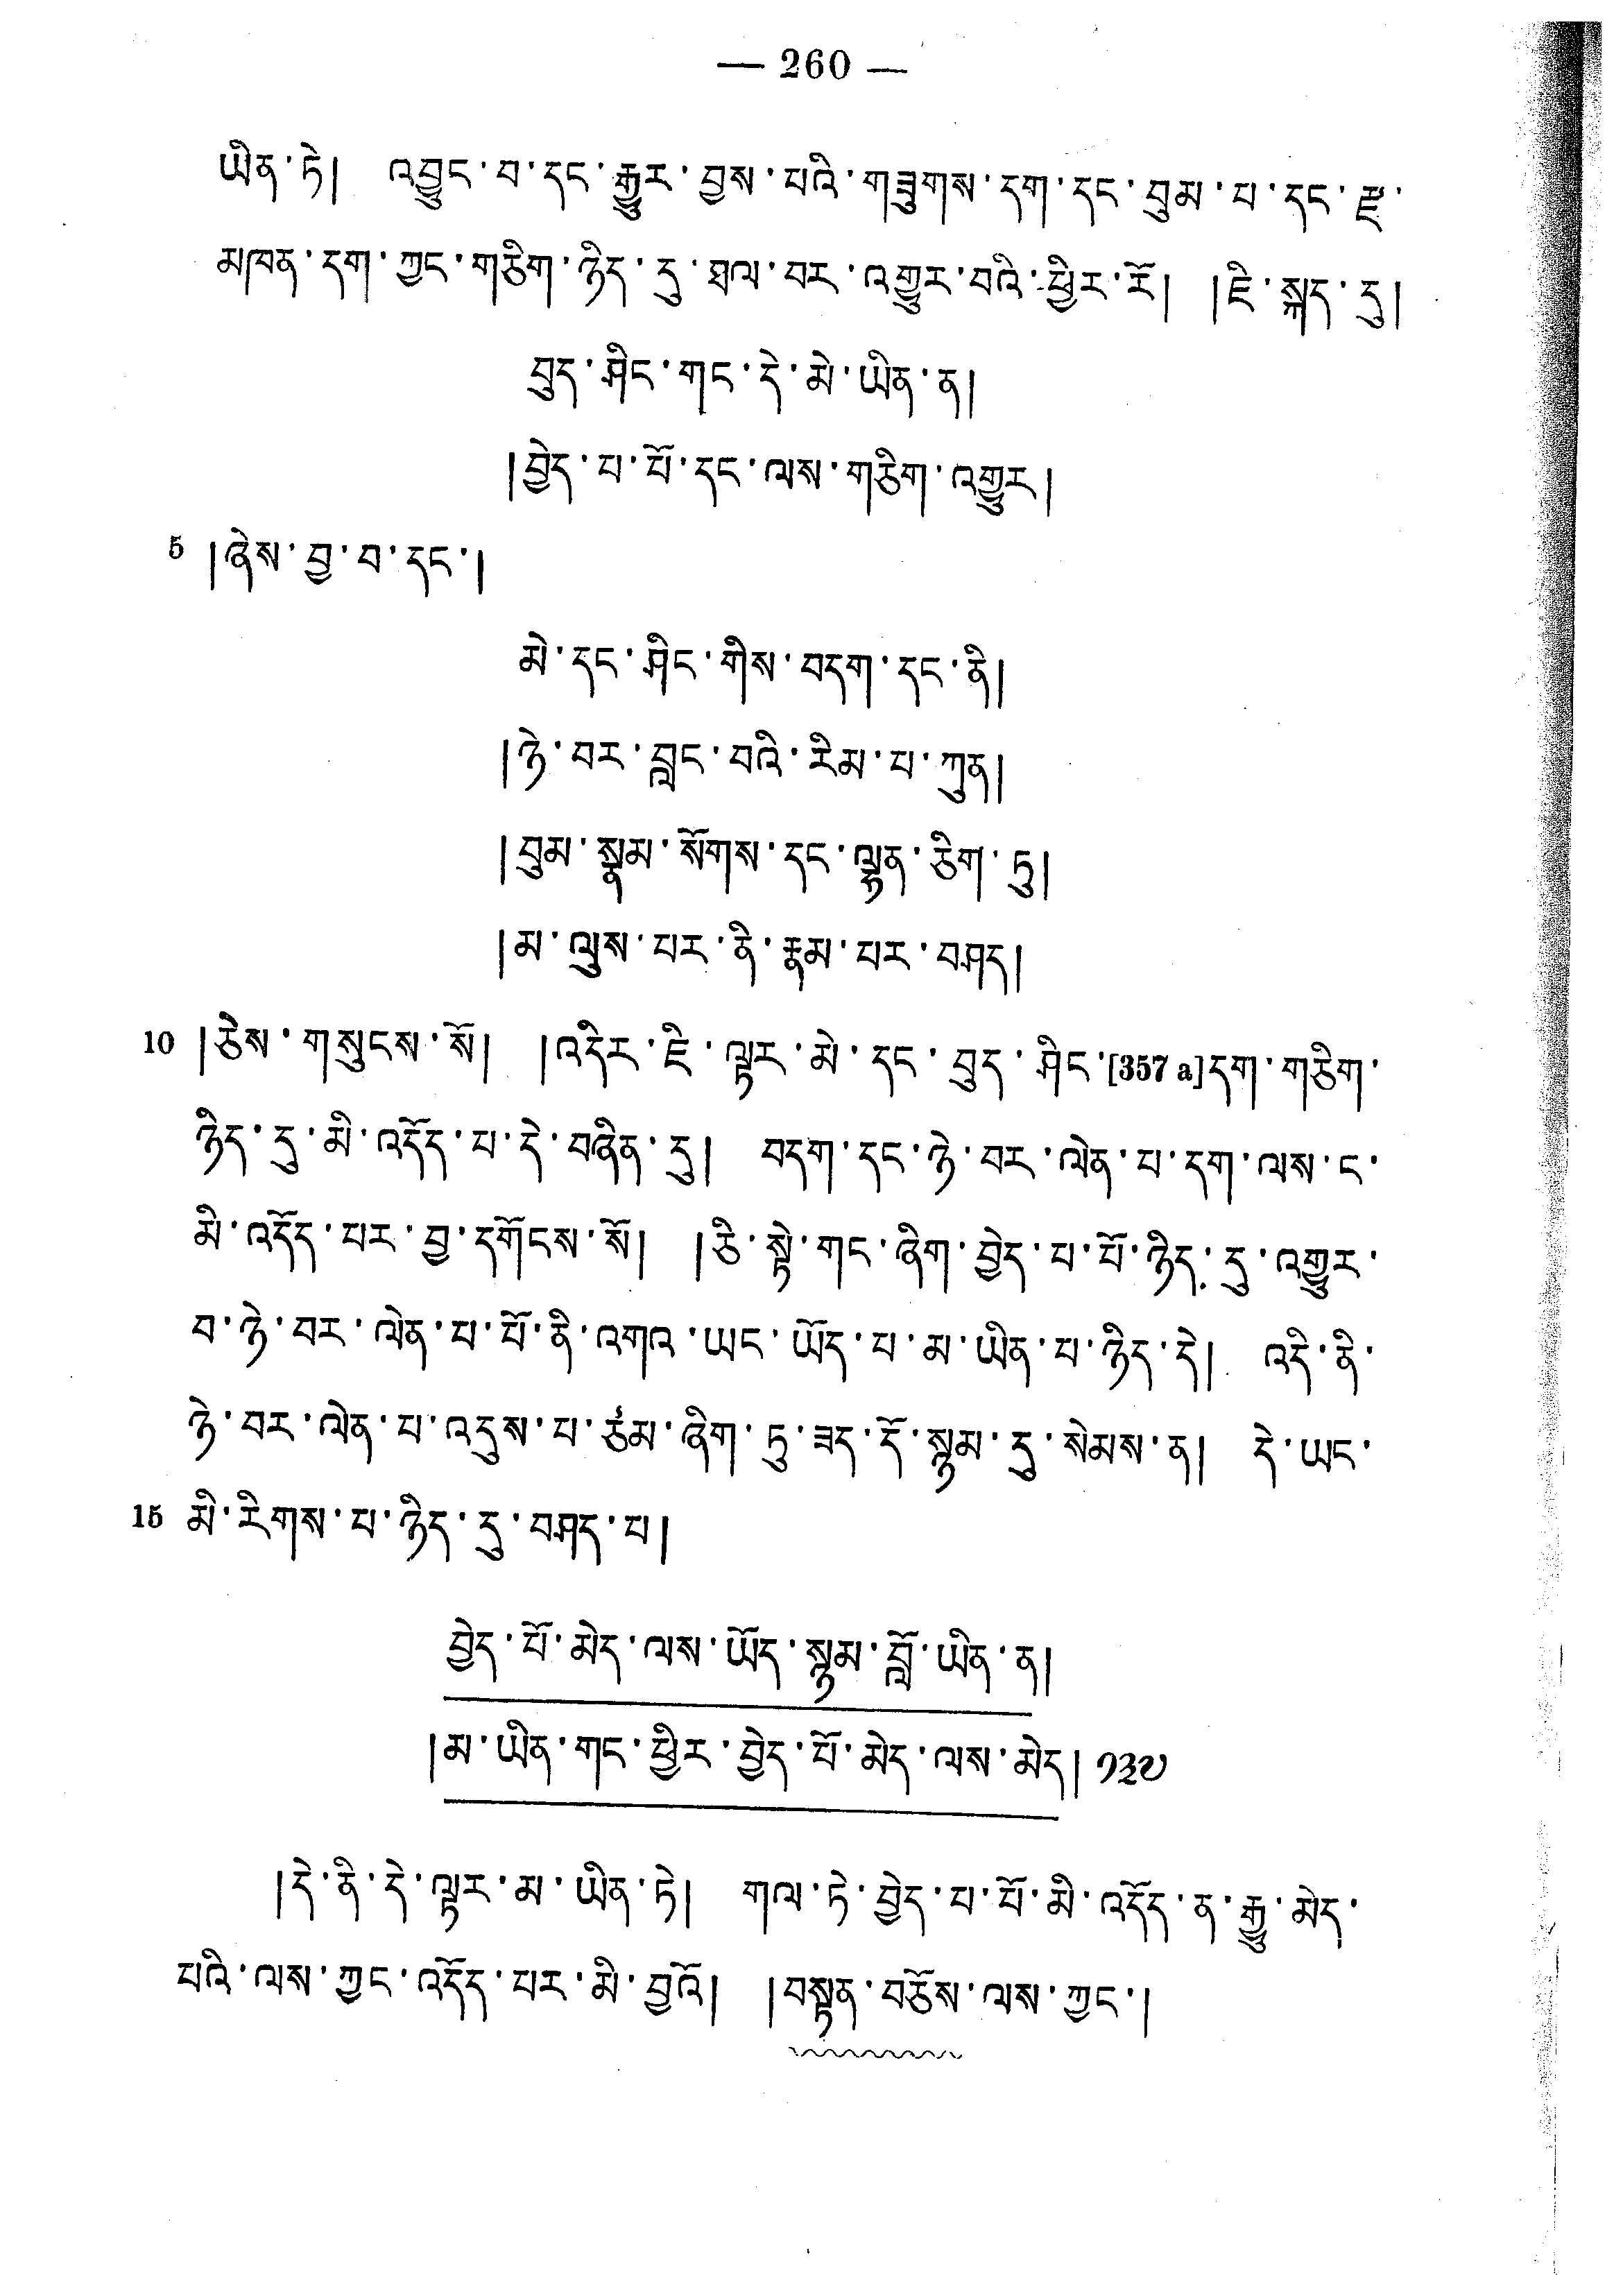 — 260 —
ཡིན་ཏེ། འབྱུང་བ་དང་རྒྱུར་བྱས་པའི་གཟུགས་དག་དང་བུམ་པ་དང་རྫ་
མཁན་དག་ཀྱང་གཅིག་ཉིད་དུ་ཐལ་བར་འགྱུར་བའི་ཕྱིར་རོ། །ཇི་སྐད་དུ།
བུད་ཤིང་གང་དེ་མེ་ཡིན་ན།
།བྱེད་པ་པོ་དང་ལས་གཅིག་འགྱུར།
5 །ཞེས་བྱ་བ་དང་།
མེ་དང་ཤིང་གིས་བདག་དང་ནི།
།ཉེ་བར་བླང་བའི་རིམ་པ་ཀུན།
།བུམ་སྣམ་སོགས་དང་ལྷན་ཅིག་ཏུ།
།མ་ལུས་པར་ནི་རྣམ་པར་བཤད།
10 །ཅེས་གསུངས་སོ། །འདིར་ཇི་ལྟར་མེ་དང་བུད་ཤིང་[357 a]དག་གཅིག་
ཉིད་དུ་མི་འདོད་པ་དེ་བཞིན་དུ། བདག་དང་ཉེ་བར་ལེན་པ་དག་ལས་ང་
མི་འདོད་པར་བྱ་དགོངས་སོ། །ཅི་སྟེ་གང་ཞིག་བྱེད་པ་པོ་ཉིད་དུ་འགྱུར་
བ་ཉེ་བར་ལེན་པ་པོ་ནི་འགའ་ཡང་ཡོད་པ་མ་ཡིན་པ་ཉིད་དེ། འདི་ནི་
ཉེ་བར་ལེན་པ་འདུས་པ་ཙམ་ཞིག་ཏུ་ཟད་དོ་སྙམ་དུ་སེམས་ན། དེ་ཡང་
15 མི་རིགས་པ་ཉིད་དུ་བཤད་པ།
བྱེད་པོ་མེད་ལས་ཡོད་སྙམ་བློ་ཡིན་ན།
།མ་ཡིན་གང་ཕྱིར་བྱེད་པོ་མེད་ལས་མེད། ༡༣༧
།དེ་ནི་དེ་ལྟར་མ་ཡིན་ཏེ། གལ་ཏེ་བྱེད་པ་པོ་མི་འདོད་ན་རྒྱུ་མེད་
པའི་ལས་ཀྱང་འདོད་པར་མི་བྱའོ། །བསྟན་བཅོས་ལས་ཀྱང་།